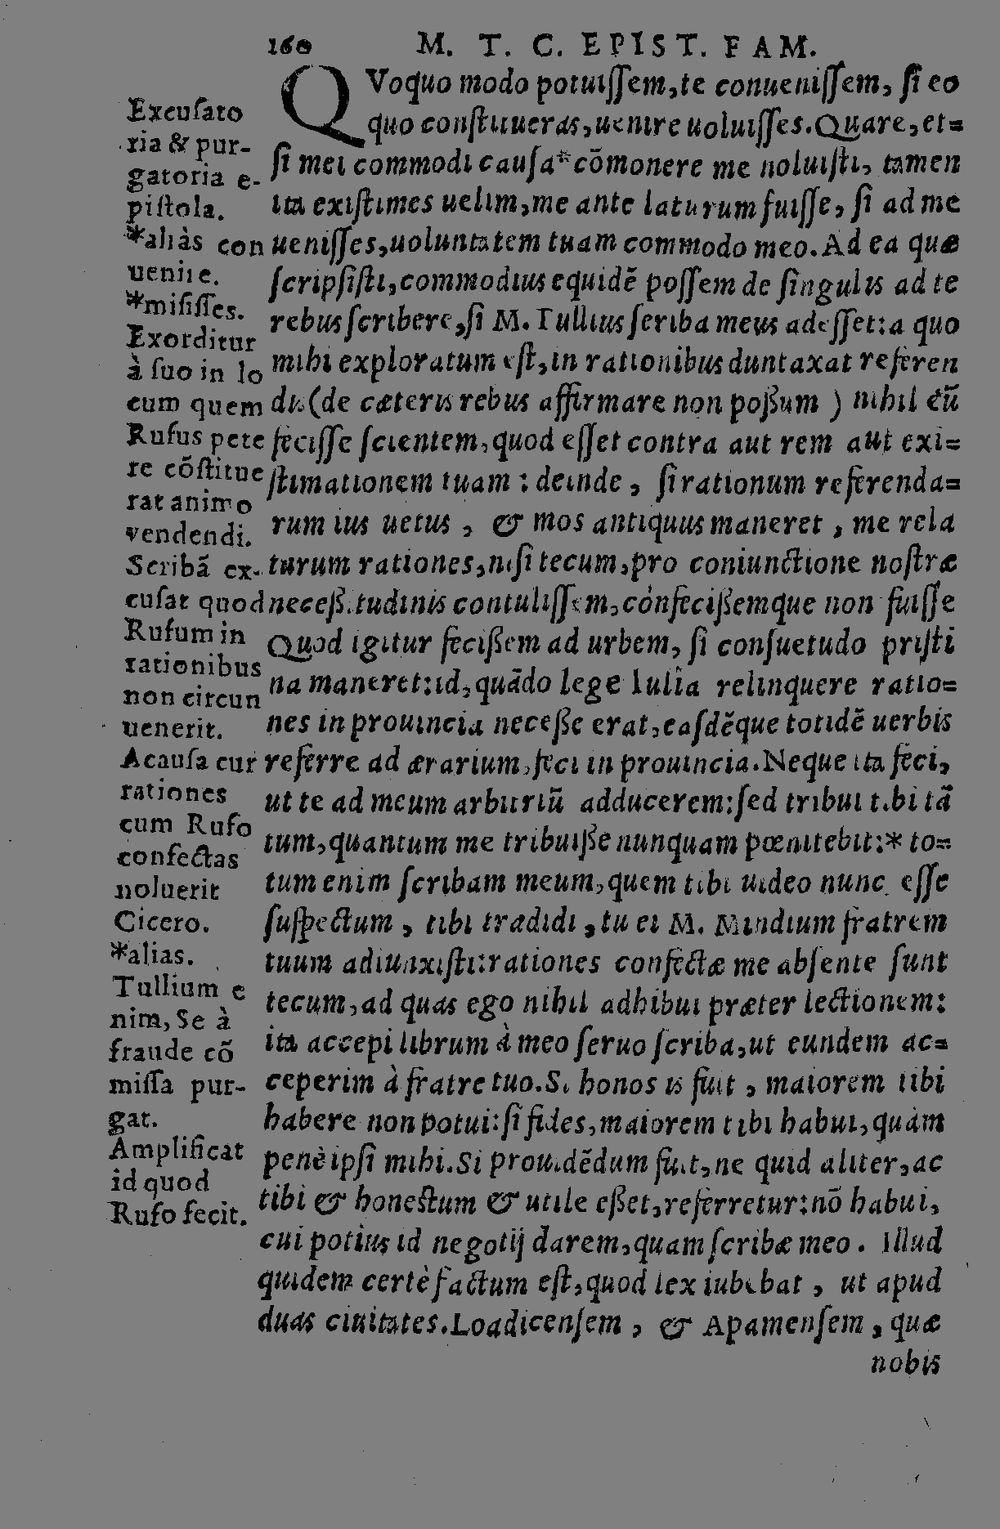 160 M. T. C. EPIST. FAM.
QVoquo modo potuissem, te conuenissem, si eo
quo constitueras, uenire uoluisses. Quare, et=
si mei commodi causa * cõmonere me noluisti, tamen
ita existimes uelim, me ante laturum fuisse, si ad me
uenisses, uoluntatem tuam commodo meo. Ad ea quæ
scripsisti, commodius equidẽ possem de singulis ad te
rebus scribere, si M. Tullius scriba meus adesset: a quo
mihi exploratum est, in rationibus duntaxat referen
dis (de cæteris rebus affirmare non poßum ) nihil eũ
fecisse scientem, quod esset contra aut rem aut exi=
stimationem tuam : deinde , si rationum referenda=
rum ius uetus , & mos antiquus maneret , me rela
turum rationes, nisi tecum, pro coniunctione nostræ
neceßitudinis contulissem, confecißemque non fuisse
Quod igitur fecißem ad urbem, si consuetudo pristi
na maneret: id, quãdo lege Iulia relinquere ratio=
nes in prouincia neceße erat, easdẽque totidẽ uerbis
referre ad ærarium, feci in prouincia. Neque ita feci,
ut te ad meum arbitriũ adducerem: sed tribui tibi tã
tum, quantum me tribuiße nunquam pœnitebit: * to=
tum enim scribam meum, quem tibi uideo nunc esse
suspectum , tibi tradidi , tu ei M. Mindium fratrem
tuum adiunxisti: rationes confectæ me absente sunt
tecum, ad quas ego nihil adhibui præter lectionem:
ita accepi librum à meo seruo scriba, ut eundem ac=
ceperim à fratre tuo. Si honos is fuit , maiorem tibi
habere non potui: si fides, maiorem tibi habui, quàm
penè ipsi mihi. Si prouidẽdum fuit, ne quid aliter, ac
tibi & honestum & utile eßet, referretur: nõ habui,
cui potius id negotij darem, quam scribæ meo. Illud
quidem certè factum est, quod lex iubebat , ut apud
duas ciuitates. Loadicensem , & Apamensem , quæ
nobis
Excusato
ria & pur-
gatoria e-
pistola.
*aliàs con
uenire.
*misisses.
Exorditur
à suo in lo
cum quem
Rufus pete
re cõstitue
rat animo
vendendi.
Scribã ex-
cusat quod
Rufum in
rationibus
non circun
uenerit.
Acausa cur
rationes
cum Rufo
confectas
noluerit
Cicero.
*alias.
Tullium e
nim, Se à
fraude cõ
missa pur-
gat.
Amplificat
id quod
Rufo fecit.